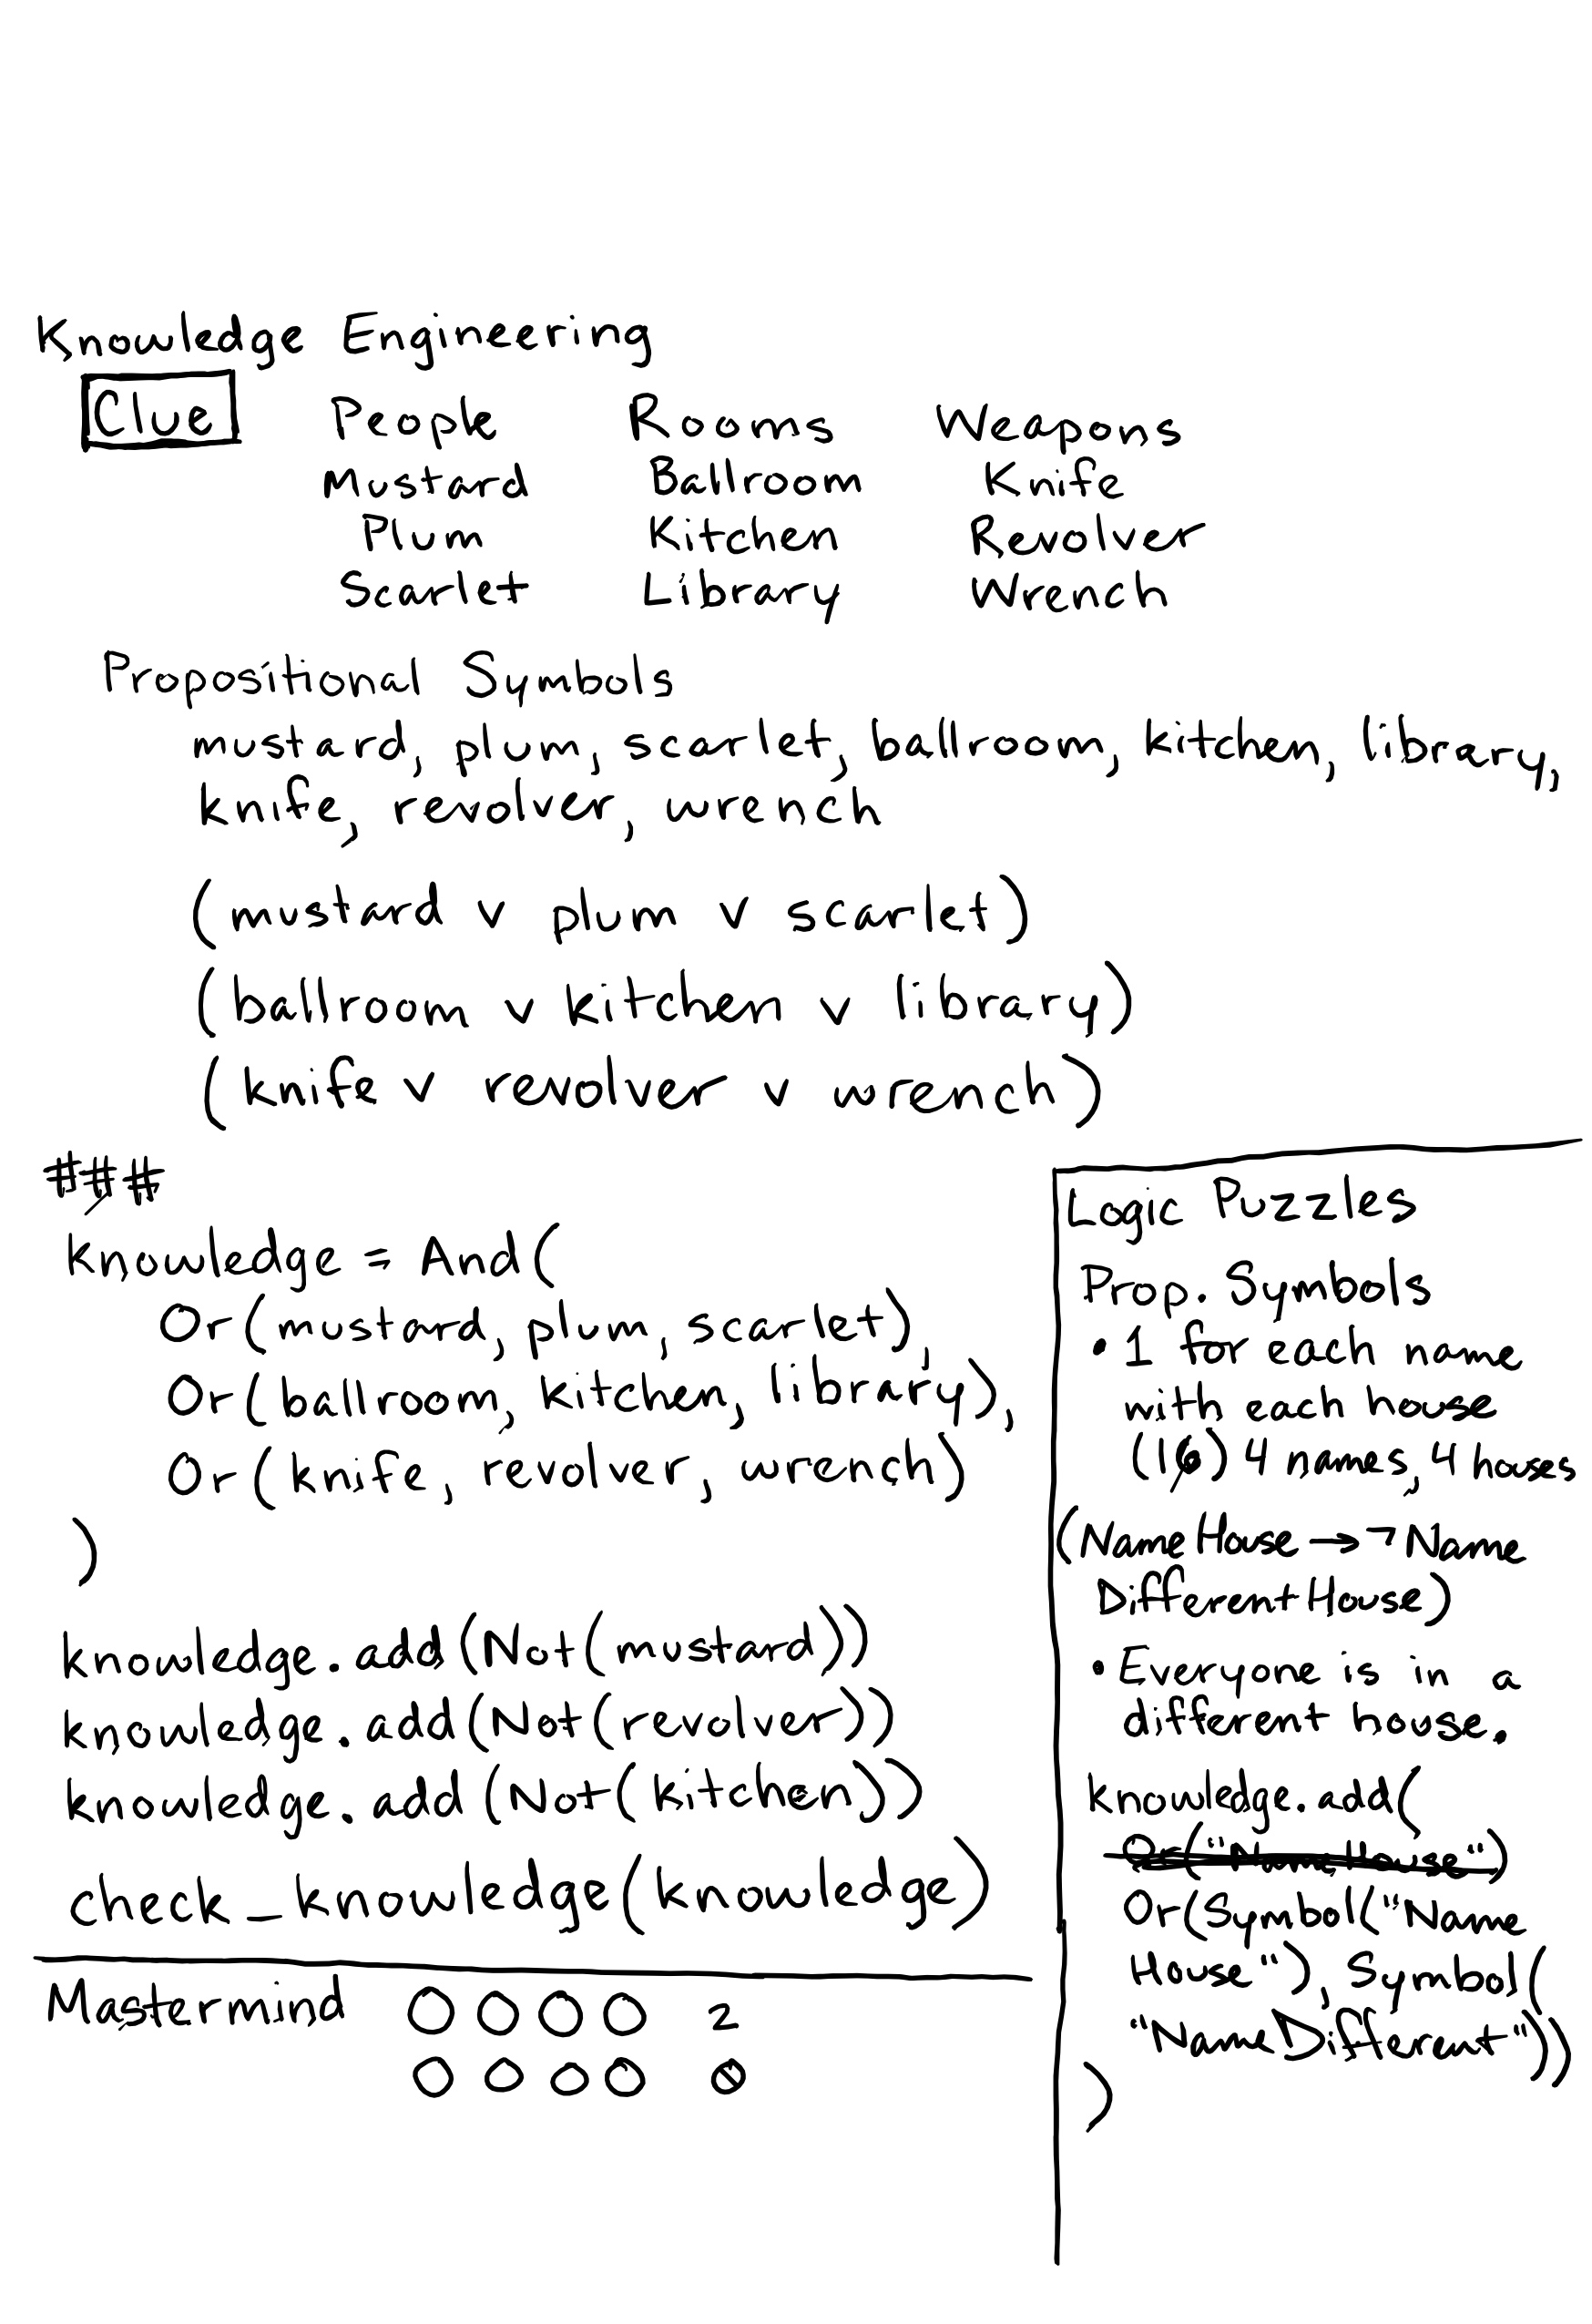 Knowledge Engineering
Clue People Rooms Weapons
Mustard Ballroom Knife
Plum Kitchen Revolver
Scarlet Library Wrench
Propositional Symbols
mustard, plum, scarlet, ballroom, kitchen, library,
knife, revolver, wrench
(mustard v plum v scarlet)
(ballroom v kitchen v library)
(knife v revolver v wrench)
###
knowledge = And(
Or(mustard, plum, scarlet),
Or(ballroom, kitchen, library),
Or(knife, revolver, wrench)
)
knowledge.add(Not(mustard))
knowledge.add(Not(revolver))
knowledge.add(Not(kitchen))
check_knowledge(knowledge)
Mastermind 2
0
Logic Puzzles
Prop. Symbols
• 1 for each name
with each house
(16) 4 names, 4 houses
(NameHouse → ¬ Name
DifferentHouse)
• Everyone is in a
different house.
knowledge.add(
Or("NameHouse")
Or(Symbol("Name
House"), Symbol(
"NameDifferent"))
)